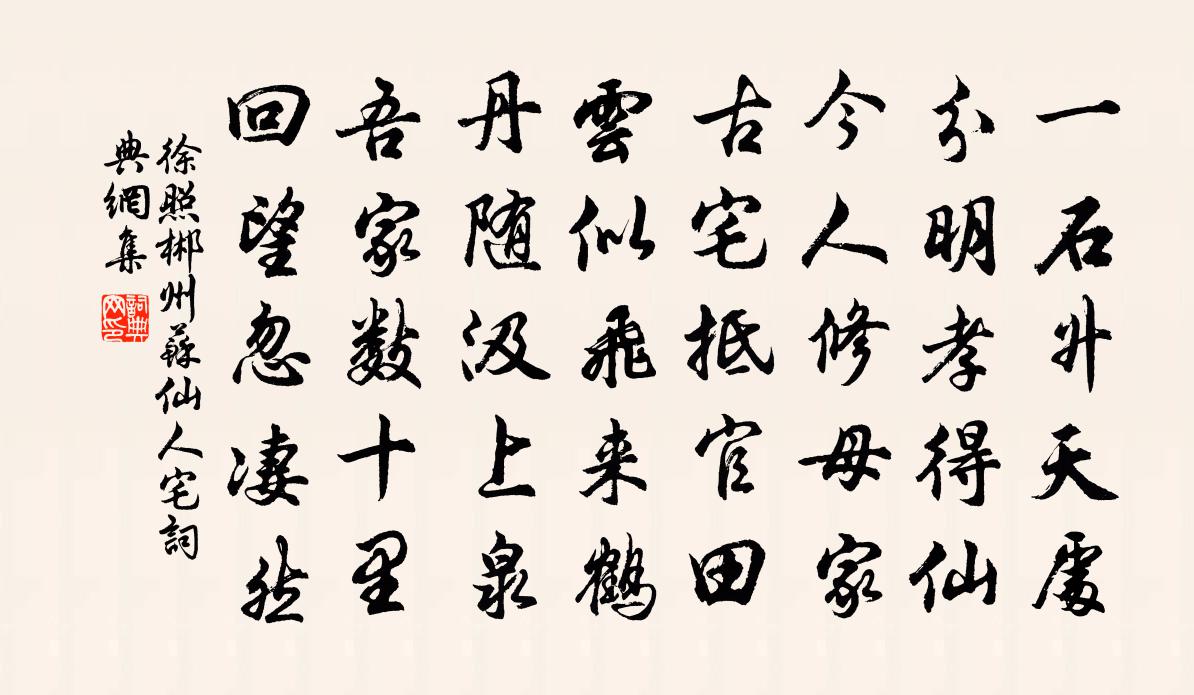 一石升天處
分明孝得仙
今人修母家
古宅抵官田
雲似飛来鶴
丹随汲上泉
吾家数十里
回望忽凄然
徐照郴州蘇仙人宅詞
典網集
詞典網印